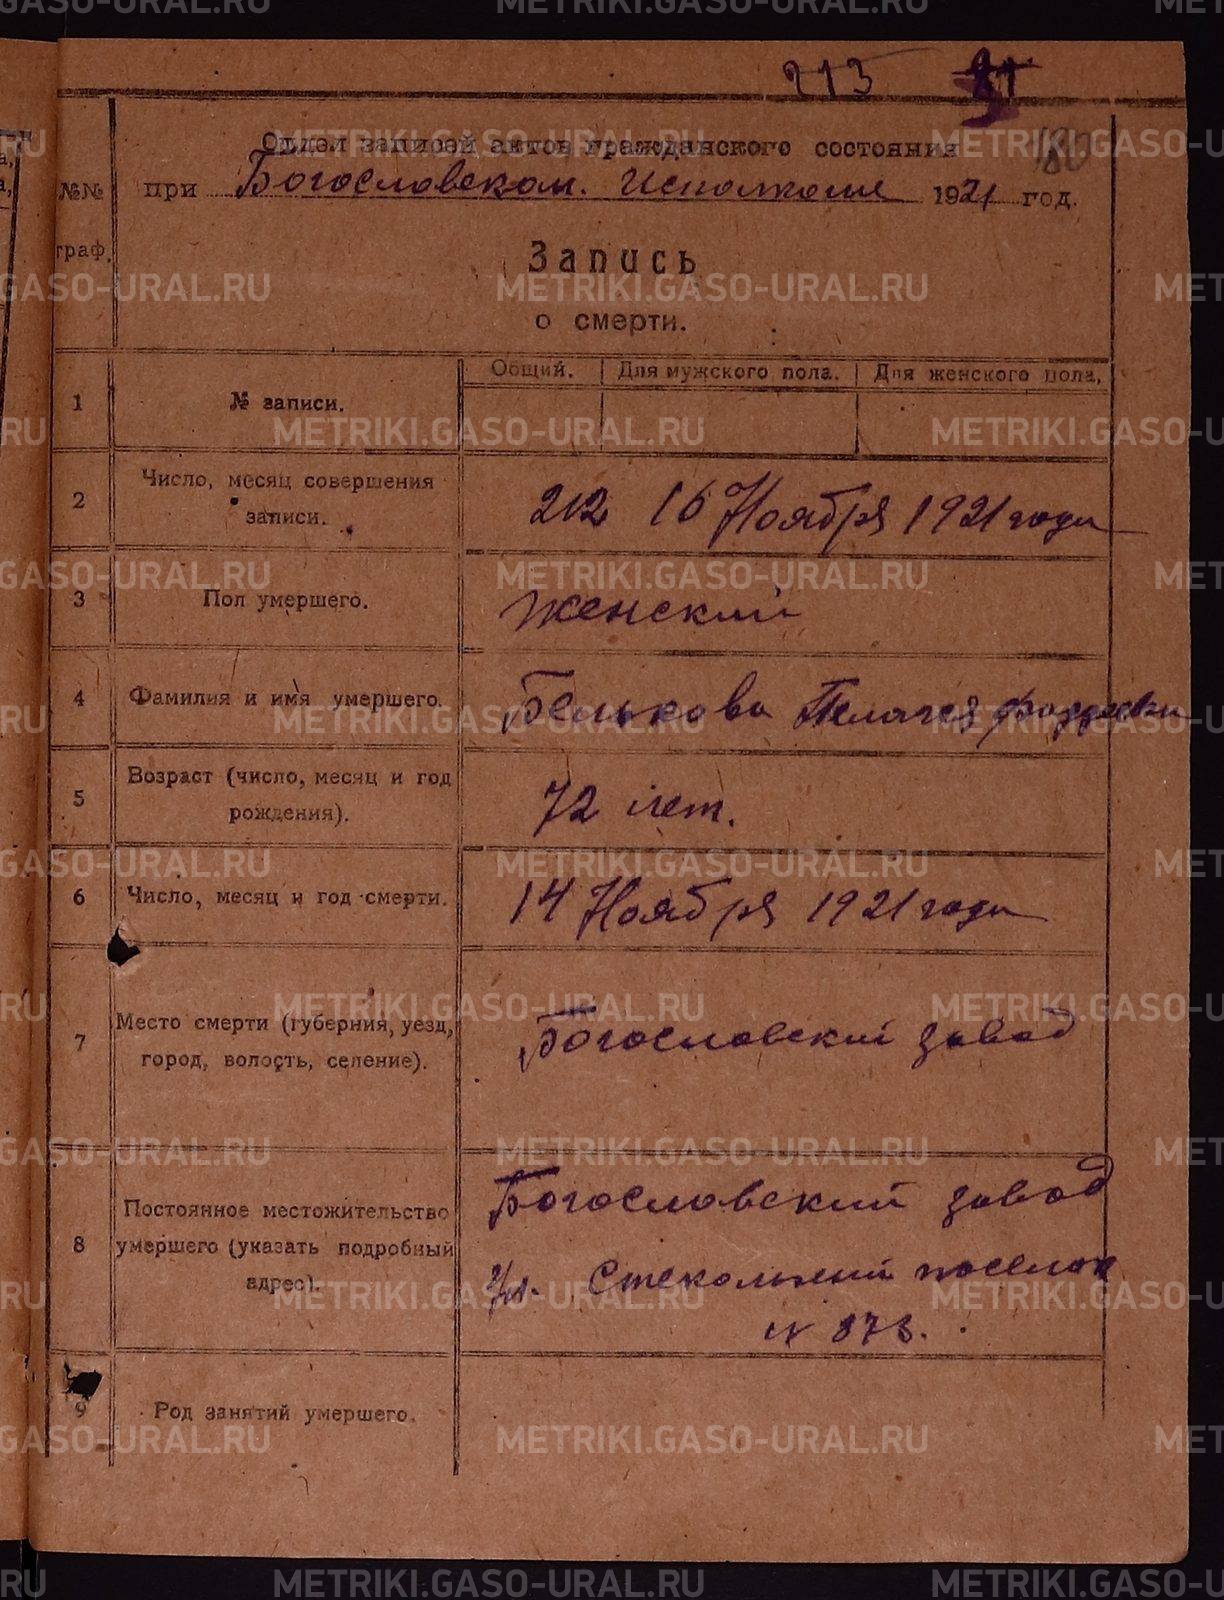 213
180
Отдел записей актов гражданского состояния
при Богословском. Исполкоме 1921 год.
№№ граф.
Запись
о смерти.
Общий. Для мужского пола. Для женского пола,
1 № записи.
2 Число, месяц совершения
записи.
212 16 Ноября 1921 года
3 Пол умершего. Женский
4 Фамилия и имя умершего. Белькова Пелагея
5 Возраст (число, месяц и год
рождения).
72 лет.
6 Число, месяц и год смерти. 14 Ноября 1921 года
7 Место смерти (губерния, уезд,
город, волость, селение).
Богословский завод
8 Постоянное местожительство
умершего (указать подробный
адрес).
Богословский завод
ул. Стекольный поселок
N 873.
9 Род занятий умершего.
METRIKI.GASO-URAL.RU